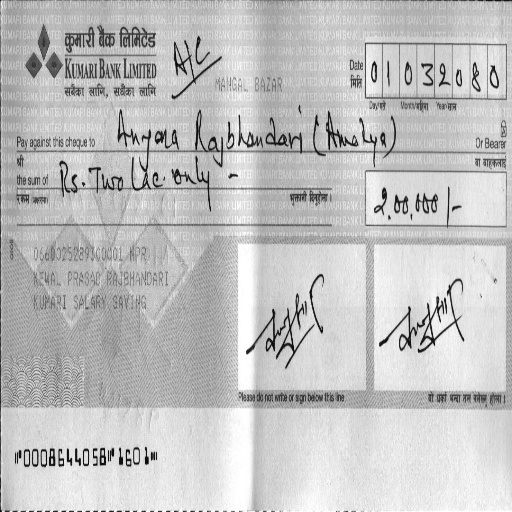 कुमारी बैंक लिमिटेड
KUMARI BANK LIMITED
सबैका लागि, सधैंका लागि
A/C
MANGAL BAZAR
Date
मिति
0 1 0 3 2 0 8 0
Day/गते Month/महिना Year/साल
Pay against this cheque to Anjana Rajbhandari (Amatya)
Or Bearer
श्री
वा वाहकलाई
the sum of Rs. Two Lac only -
रकम (अक्षरमा)
भुक्तानी दिनुहोला।
2,00,000/-
KEWAL PRASAD RAJBHANDARI
KUMARI SALARY SAVING
Please do not write or sign below this line
⑈0008644058⑈1601⑈